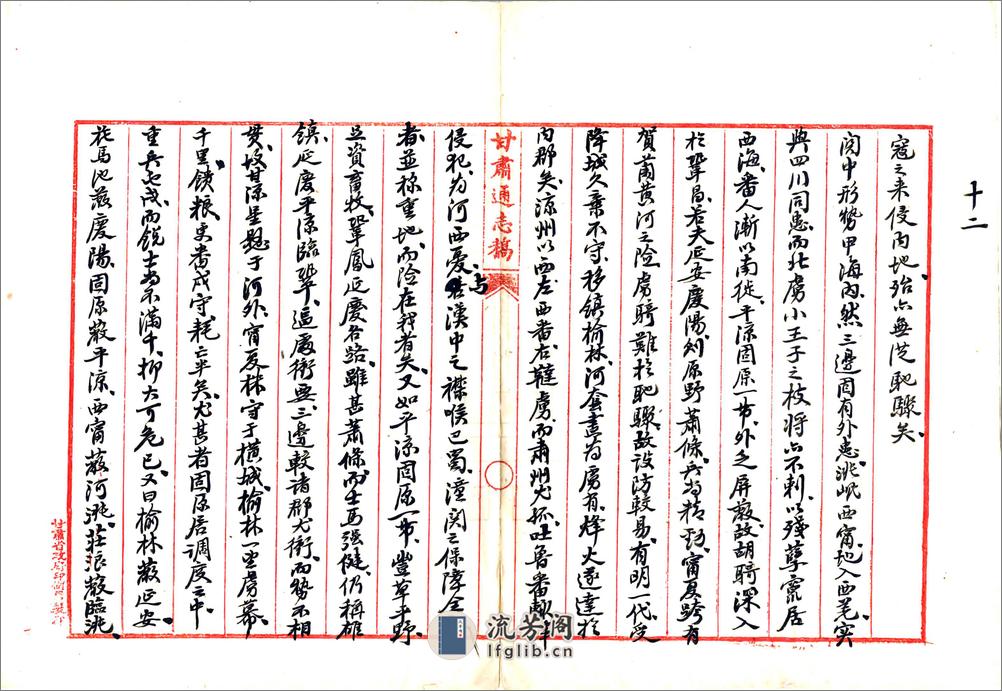 十二
寇之来侵内地殆亦無涉馳驟矣
関中形势甲海内然三邊固有外患洮岷西甯地入西羌实
與四川同患而北虏小王子之枝将亦不剌以残孽窜居
西海番人漸以南徙平凉固原一帶外乏屏蔽故胡騎深入
於鞏昌若夫延安慶陽刈原野蕭條兵为精勁甯夏跨有
賀蘭黄河之險虏騎難於馳驟故设防較易有明一代受
降城久棄不守移鎮榆林河套盡为虏有烽火遂達於
内郡矣凉州以西左西番右韃虏而肃州尤孤吐鲁番
侵犯为河西憂与漢中之襟喉巴蜀潼関之保障全
者並称重地而险在我者矣又如平凉固原一带豐草平野
旦資畜牧鞏鳳延慶各路雖甚蕭條而士马强健仍稱雄
鎮延慶平凉臨鞏逼處衝要三邊較诸郡尤衝而势不相
贯故甘凉坐懸于河外甯夏株守于横城榆林一望虏幕
千里饋粮史番戍守耗亡半矣尤甚者固原居调度之中
重兵屯戍而鋭士尚不满千抑大可危已又曰榆林蔽延安
花马池蔽慶陽固原蔽平凉西甯蔽河洮莊浪蔽臨洮
甘肅通志稿
甘肅省政府印
流芳阁
lfglib.cn